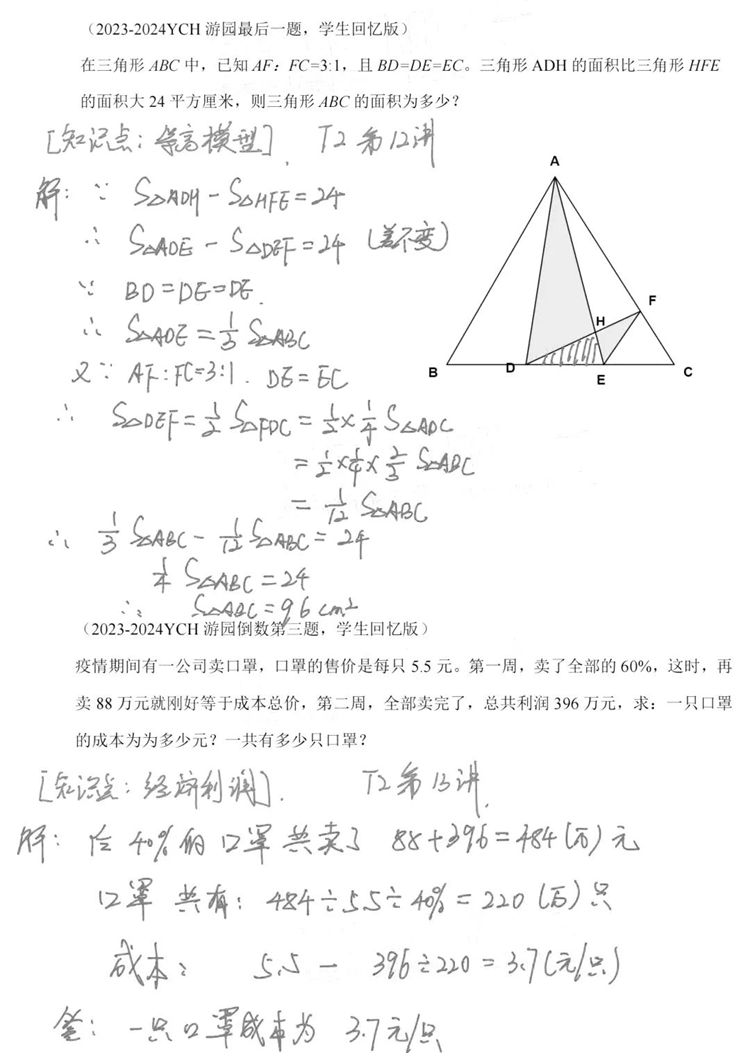 （2023-2024YCH 游园最后一题，学生回忆版）
在三角形 ABC 中，已知 AF：FC=3:1，且 BD=DE=EC。三角形 ADH 的面积比三角形 HFE
的面积大 24 平方厘米，则三角形 ABC 的面积为多少？
[知识点：等高模型]. T2 第12讲
解：∵ S△ADH－S△HFE＝24
∴ S△ADE－S△DEF＝24 (差不变)
∵ BD＝DE＝DE.
∴ S△ADE＝1/3 S△ABC
又∵ AF:FC＝3:1. DE＝EC
∴ S△DEF＝1/2 S△FDC＝1/2×1/4 S△ADC
＝1/2×1/4×2/3 S△ABC
＝1/12 S△ABC
∴ 1/3 S△ABC－1/12 S△ABC＝24
1/4 S△ABC＝24
∴ S△ABC＝96 cm²
A
F
H
B
D
E
C
（2023-2024YCH 游园倒数第三题，学生回忆版）
疫情期间有一公司卖口罩，口罩的售价是每只 5.5 元。第一周，卖了全部的 60%，这时，再
卖 88 万元就刚好等于成本总价，第二周，全部卖完了，总共利润 396 万元，求：一只口罩
的成本为为多少元？一共有多少只口罩？
[知识点：经济利润]. T2 第13讲.
解：后 40% 的口罩共卖了 88+396＝484(万)元
口罩共有：484÷5.5÷40%＝220(万)只
成本： 5.5－396÷220＝3.7(元/只)
答：一只口罩成本为 3.7元/只